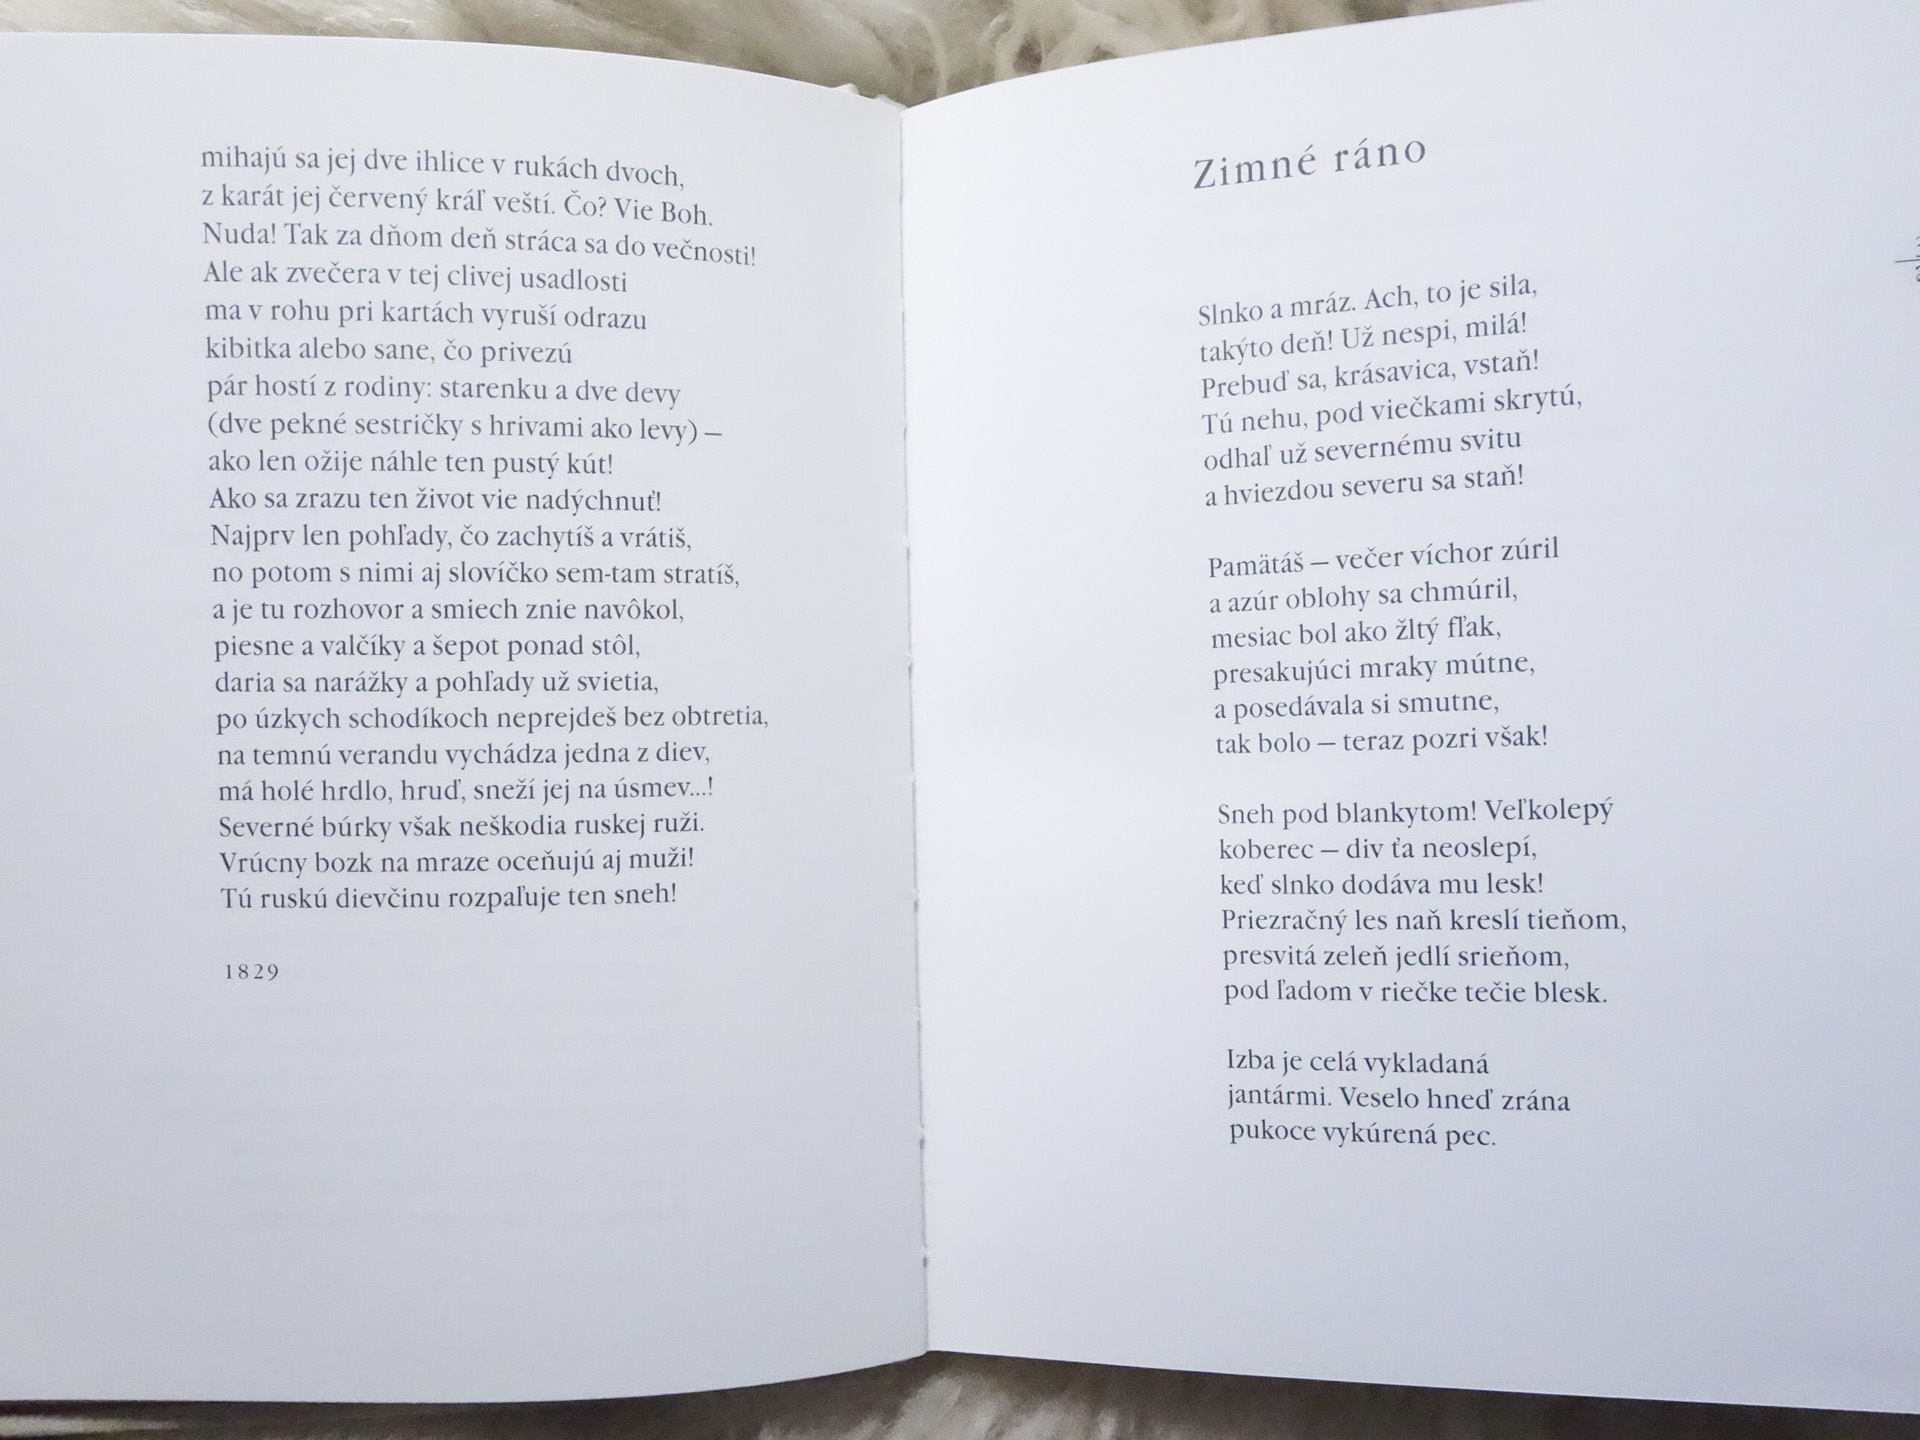 mihajú sa jej dve ihlice v rukách dvoch,
z karát jej červený kráľ veští. Čo? Vie Boh.
Nuda! Tak za dňom deň stráca sa do večnosti!
Ale ak zvečera v tej clivej usadlosti
ma v rohu pri kartách vyruší odrazu
kibitka alebo sane, čo privezú
pár hostí z rodiny: starenku a dve devy
(dve pekné sestričky s hrivami ako levy) –
ako len ožije náhle ten pustý kút!
Ako sa zrazu ten život vie nadýchnuť!
Najprv len pohľady, čo zachytíš a vrátiš,
no potom s nimi aj slovíčko sem-tam stratíš,
a je tu rozhovor a smiech znie navôkol,
piesne a valčíky a šepot ponad stôl,
daria sa narážky a pohľady už svietia,
po úzkych schodíkoch neprejdeš bez obtretia,
na temnú verandu vychádza jedna z diev,
má holé hrdlo, hruď, sneží jej na úsmev...!
Severné búrky však neškodia ruskej ruži.
Vrúcny bozk na mraze oceňujú aj muži!
Tú ruskú dievčinu rozpaľuje ten sneh!
1829
Zimné ráno
Slnko a mráz. Ach, to je sila,
takýto deň! Už nespi, milá!
Prebuď sa, krásavica, vstaň!
Tú nehu, pod viečkami skrytú,
odhaľ už severnému svitu
a hviezdou severu sa staň!
Pamätáš – večer víchor zúril
a azúr oblohy sa chmúril,
mesiac bol ako žltý fľak,
presakujúci mraky mútne,
a posedávala si smutne,
tak bolo – teraz pozri však!
Sneh pod blankytom! Veľkolepý
koberec – div ťa neoslepí,
keď slnko dodáva mu lesk!
Priezračný les naň kreslí tieňom,
presvitá zeleň jedlí srieňom,
pod ľadom v riečke tečie blesk.
Izba je celá vykladaná
jantármi. Veselo hneď zrána
pukoce vykúrená pec.